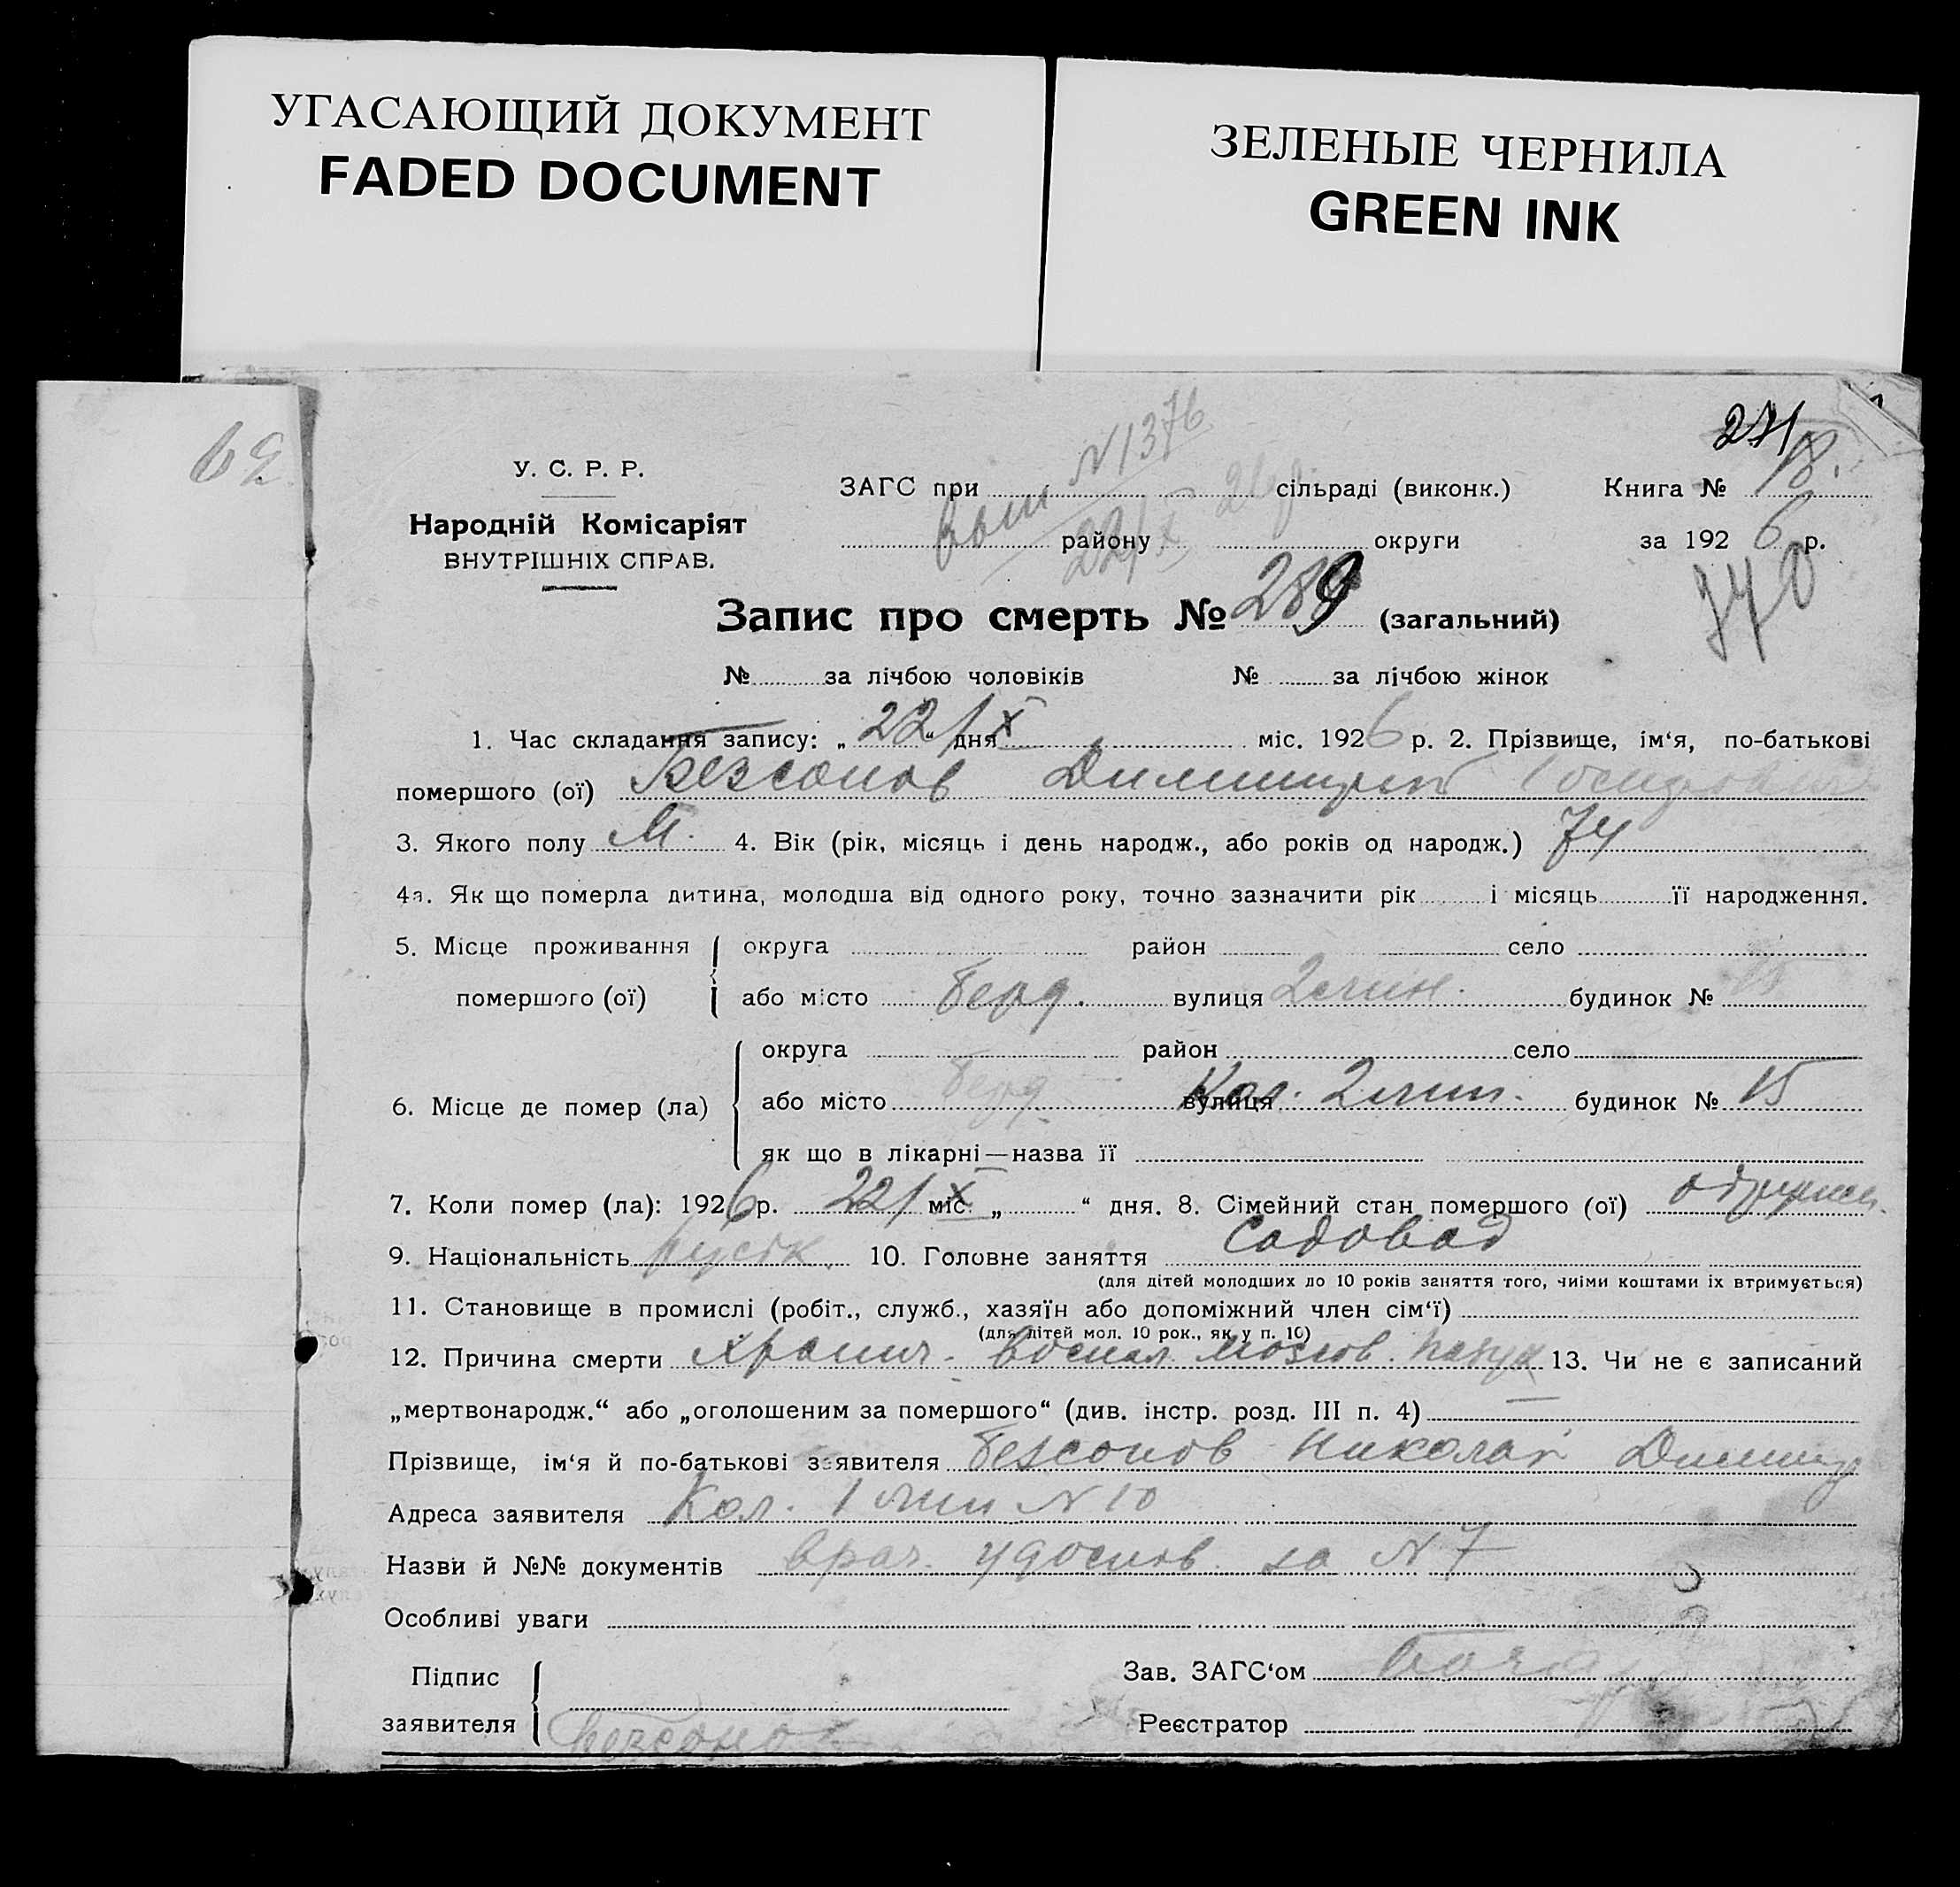 УГАСАЮЩИЙ ДОКУМЕНТ
FADED DOCUMENT
ЗЕЛЕНЫЕ ЧЕРНИЛА
GREEN INK
62
271
У. С. Р. Р.
Народній Комісаріят
ВНУТРІШНІХ СПРАВ.
N 1376
22/X
ЗАГС при сільраді (виконк.)
району округи
Книга № 18.
за 1926 р.
740
Запис про смерть № 289 (загальний)
№ за лічбою чоловіків № за лічбою жінок
1. Час складання запису: „22/X“ дня міс. 1926 р. 2. Прізвище, ім‘я, по-батькові
померщого (ої) Безсонов Димитрий
3. Якого полу М. 4. Вік (рік, місяць і день народж., або років од народж.) 74
4а. Як що померла дитина, молодша від одного року, точно зазначити рік і місяць її народження.
5. Місце проживання померщого (ої) округа район село
або місто Берд. вулиця 2 лин. будинок № 15
6. Місце де помер (ла) округа район село
або місто Берд. вулиця Кол. 2 лин. будинок № 15
як що в лікарні—назва її
7. Коли помер (ла): 1926 р. 22/X міс. „ “ дня. 8. Сімейний стан померщого (ої)
9. Національність русск. 10. Головне заняття Садовод
(для дітей молодших до 10 років заняття того, чиїми коштами їх втримується)
11. Становище в промислі (робіт., служб., хазяїн або допоміжний член сім‘ї)
(для дітей мол. 10 рок., як у п. 10)
12. Причина смерти хронич. воспал. 13. Чи не є записаний
„мертвонародж.“ або „оголошеним за померщого“ (див. інстр. розд. III п. 4)
Прізвище, ім‘я й по-батькові заявителя Безсонов Николай Димитр
Адреса заявителя Кол. 1 лин N 10
Назви й №№ документів врач. удостов. за N 7
Особливі уваги
Підпис заявителя Безсонов
Зав. ЗАГС‘ом
Реєстратор